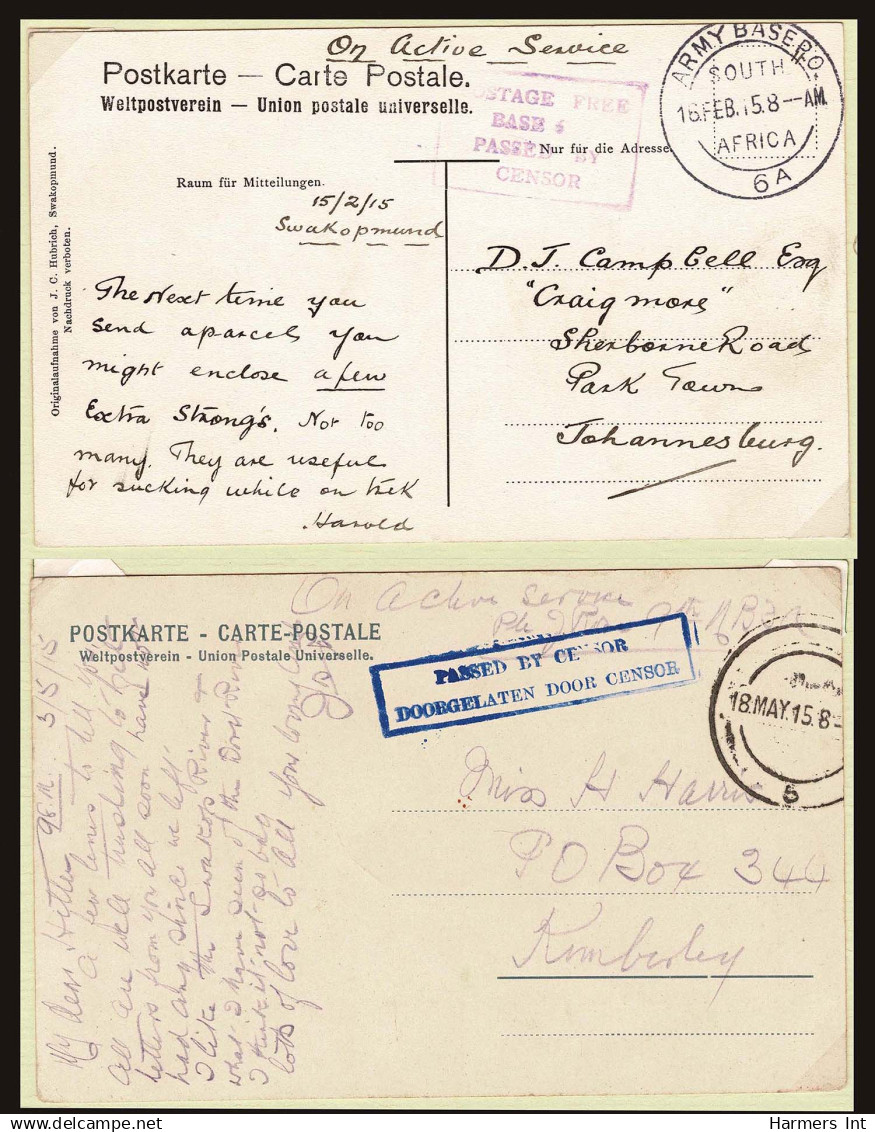 On Active Service
Postkarte — Carte Postale.
Weltpostverein — Union postale universelle.
STAGE FREE
BASE 6
PASSED BY
CENSOR
ARMY BASE P.O.
SOUTH
16.FEB.15.8--AM.
AFRICA
6A
Nur für die Adresse
Raum für Mitteilungen.
15/2/15
Swakopmund
Originalaufnahme von J. C. Hubrich, Swakopmund.
Nachdruck verboten.
The Next time you
send a parcel you
might enclose a few
Extra Strong's. Not too
many. They are useful
for sucking while on trek
Harold
D. J. Campbell Esq
"Craigmore"
Sherborne Road
Park Town
Johannesburg.
On Active Service
POSTKARTE - CARTE-POSTALE
Weltpostverein - Union Postale Universelle.
PASSED BY CENSOR
DOORGELATEN DOOR CENSOR
18.MAY.15.8-
6
My dear Hettie 3/5/15
a few lines to tell you
all are well trusting to
letters from you all soon have not
had any since we left
I like the Swakop River &
what I have seen of the
I think it not so bad
lots of love to all your loving
Miss H Harris
P O Box 344
Kimberley
Harmers Int